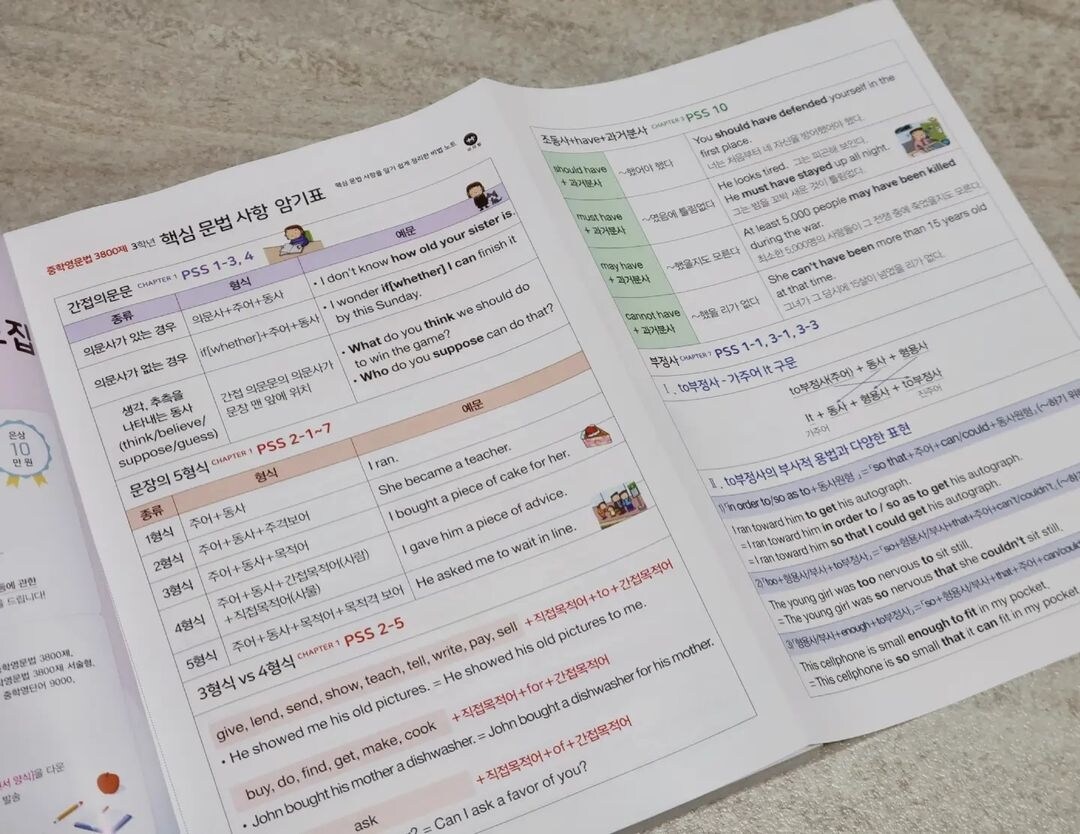 중학영문법 3800제 3학년 핵심 문법 사항 암기표
핵심 문법 사항을 알기 쉽게 정리한 비법 노트
간접의문문 CHAPTER 1 PSS 1-3, 4
종류 형식 예문
의문사가 있는 경우 의문사+주어+동사 • I don't know how old your sister is.
의문사가 없는 경우 if[whether]+주어+동사 • I wonder if[whether] I can finish it
by this Sunday.
생각, 추측을
나타내는 동사
(think/believe/
suppose/guess)
간접 의문문의 의문사가
문장 맨 앞에 위치
• What do you think we should do
to win the game?
• Who do you suppose can do that?
문장의 5형식 CHAPTER 1 PSS 2-1~7
종류 형식 예문
1형식 주어+동사 I ran.
2형식 주어+동사+주격보어 She became a teacher.
3형식 주어+동사+목적어 I bought a piece of cake for her.
4형식 주어+동사+간접목적어(사람)
+직접목적어(사물) I gave him a piece of advice.
5형식 주어+동사+목적어+목적격 보어 He asked me to wait in line.
3형식 vs 4형식 CHAPTER 1 PSS 2-5
give, lend, send, show, teach, tell, write, pay, sell +직접목적어+to+간접목적어
• He showed me his old pictures. = He showed his old pictures to me.
buy, do, find, get, make, cook +직접목적어+for+간접목적어
• John bought his mother a dishwasher. = John bought a dishwasher for his mother.
ask +직접목적어+of+간접목적어
? = Can I ask a favor of you?
조동사+have+과거분사 CHAPTER 3 PSS 10
should have
+ 과거분사
~했어야 했다
You should have defended yourself in the
first place.
너는 처음부터 네 자신을 방어했어야 했다.
must have
+ 과거분사
~였음에 틀림없다
He looks tired. 그는 피곤해 보인다.
He must have stayed up all night.
그는 밤을 꼬박 새운 것이 틀림없다.
may have
+ 과거분사
~했을지도 모른다
At least 5,000 people may have been killed
during the war.
최소한 5,000명의 사람들이 그 전쟁 중에 죽었을지도 모른다.
cannot have
+ 과거분사
~했을 리가 없다
She can't have been more than 15 years old
at that time.
그녀가 그 당시에 15살이 넘었을 리가 없다.
부정사 CHAPTER 7 PSS 1-1, 3-1, 3-3
Ⅰ. to부정사 - 가주어 It 구문
to부정사(주어) + 동사 + 형용사
It + 동사 + 형용사 + to부정사
가주어 진주어
Ⅱ. to부정사의 부사적 용법과 다양한 표현
1) 「in order to/so as to+동사원형」=「so that+주어+can/could+동사원형」(~하기 위
I ran toward him to get his autograph.
= I ran toward him in order to / so as to get his autograph.
= I ran toward him so that I could get his autograph.
2) 「too+형용사/부사+to부정사」=「so+형용사/부사+that+주어+can't/couldn't
The young girl was too nervous to sit still.
= The young girl was so nervous that she couldn't sit still.
3) 「형용사/부사+enough+to부정사」=「so+형용사/부사+that+주어+can/could
This cellphone is small enough to fit in my pocket.
= This cellphone is so small that it can fit in my pocket
집
은상
10
만 원
동에 관한
드립니다!
학영문법 3800제,
학영문법 3800제 서술형,
중학영단어 9000,
서 양식]을 다운
발송